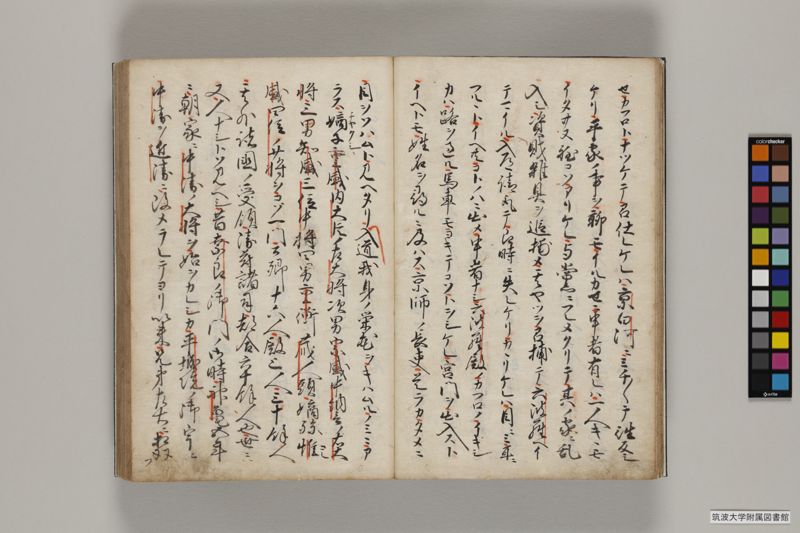 セカフロトナツケテ召仕レケレハ京白河ニミチ〳〵テ往反
ケリ平家ノ事ヲ聊モイルカセニ申者有レハ一人キヽモ
イタサヌ程コソアリケレ与黨ニフレメクリテ其ノ家ニ乱
入シ資財雑具ヲ追捕メ其ヤツヲ召捕テ六波羅ヘイ
テマイル
フルトイヘトモコトハニ出メ申者ナシ六波羅殿ノカフロトイヒテ
カハ路ヲ過ル馬車モヨキテコソトヲシケレ宮門ヲ出入スト
イヘトモ姓名ヲ尋ルニ及ハス京師ノ長吏
目ヲソハムト見ヘタリ入道我身ノ栄花ヲキハムルノミニア
ラス嫡子重盛内大臣ノ左大将次男宗盛中納言ノ右大
将三男知盛三位中将四男重衡蔵人頭嫡孫惟
盛四位ノ少将ヲヨソ一門公卿十六人殿上人三十餘人
其外諸國ノ受領衛府諸司都合六十餘人也世ニハ
又人ナシトソ見ヘシ昔奈良ノ御門ノ御時神亀五年
朝家ニ中衛ノ大将ヲ始ヲカレシカ平城院ノ御宇ニ
中衛ヲ近衛ニ改メラレテヨリ以来兄弟左右ニ相双
colorchecker
筑波大学附属図書館